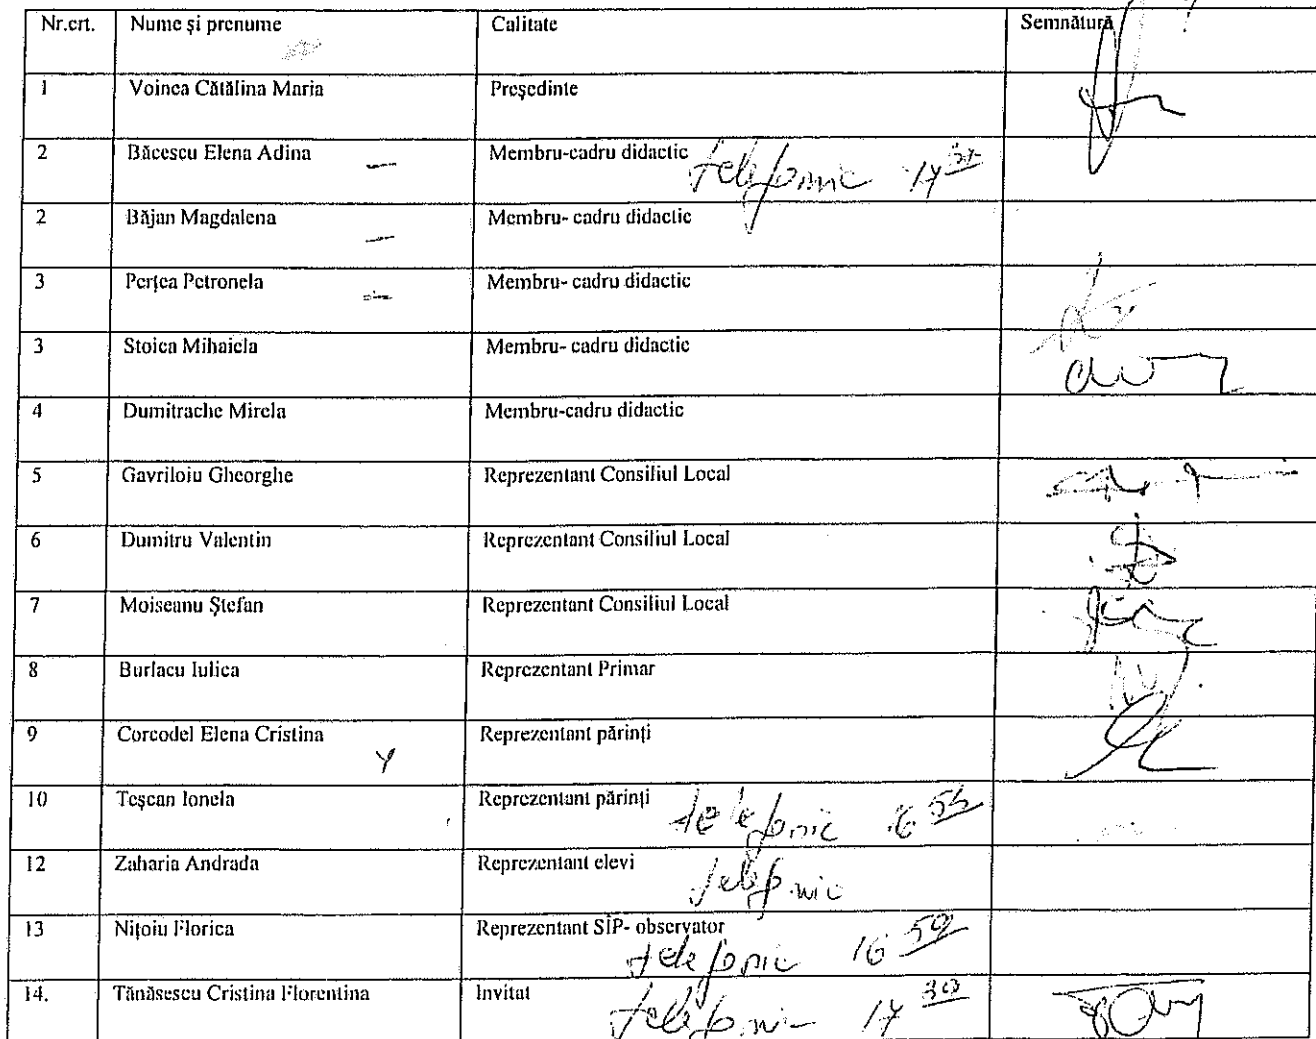 Nr.crt. Nume și prenume Calitate Semnătură
1 Voinea Cătălina Maria Președinte
2 Băcescu Elena Adina Membru-cadru didactic telefonic
2 Băjan Magdalena Membru- cadru didactic
3 Perțea Petronela Membru- cadru didactic
3 Stoica Mihaiela Membru- cadru didactic
4 Dumitrache Mirela Membru-cadru didactic
5 Gavriloiu Gheorghe Reprezentant Consiliul Local
6 Dumitru Valentin Reprezentant Consiliul Local
7 Moiseanu Ștefan Reprezentant Consiliul Local
8 Burlacu Iulica Reprezentant Primar
9 Corcodel Elena Cristina Reprezentant părinți
10 Teșcan Ionela Reprezentant părinți telefonic
12 Zaharia Andrada Reprezentant elevi telefonic
13 Nițoiu Florica Reprezentant SIP- observator
telefonic 16 59
14. Tănăsescu Cristina Florentina Invitat telefonic 17 30